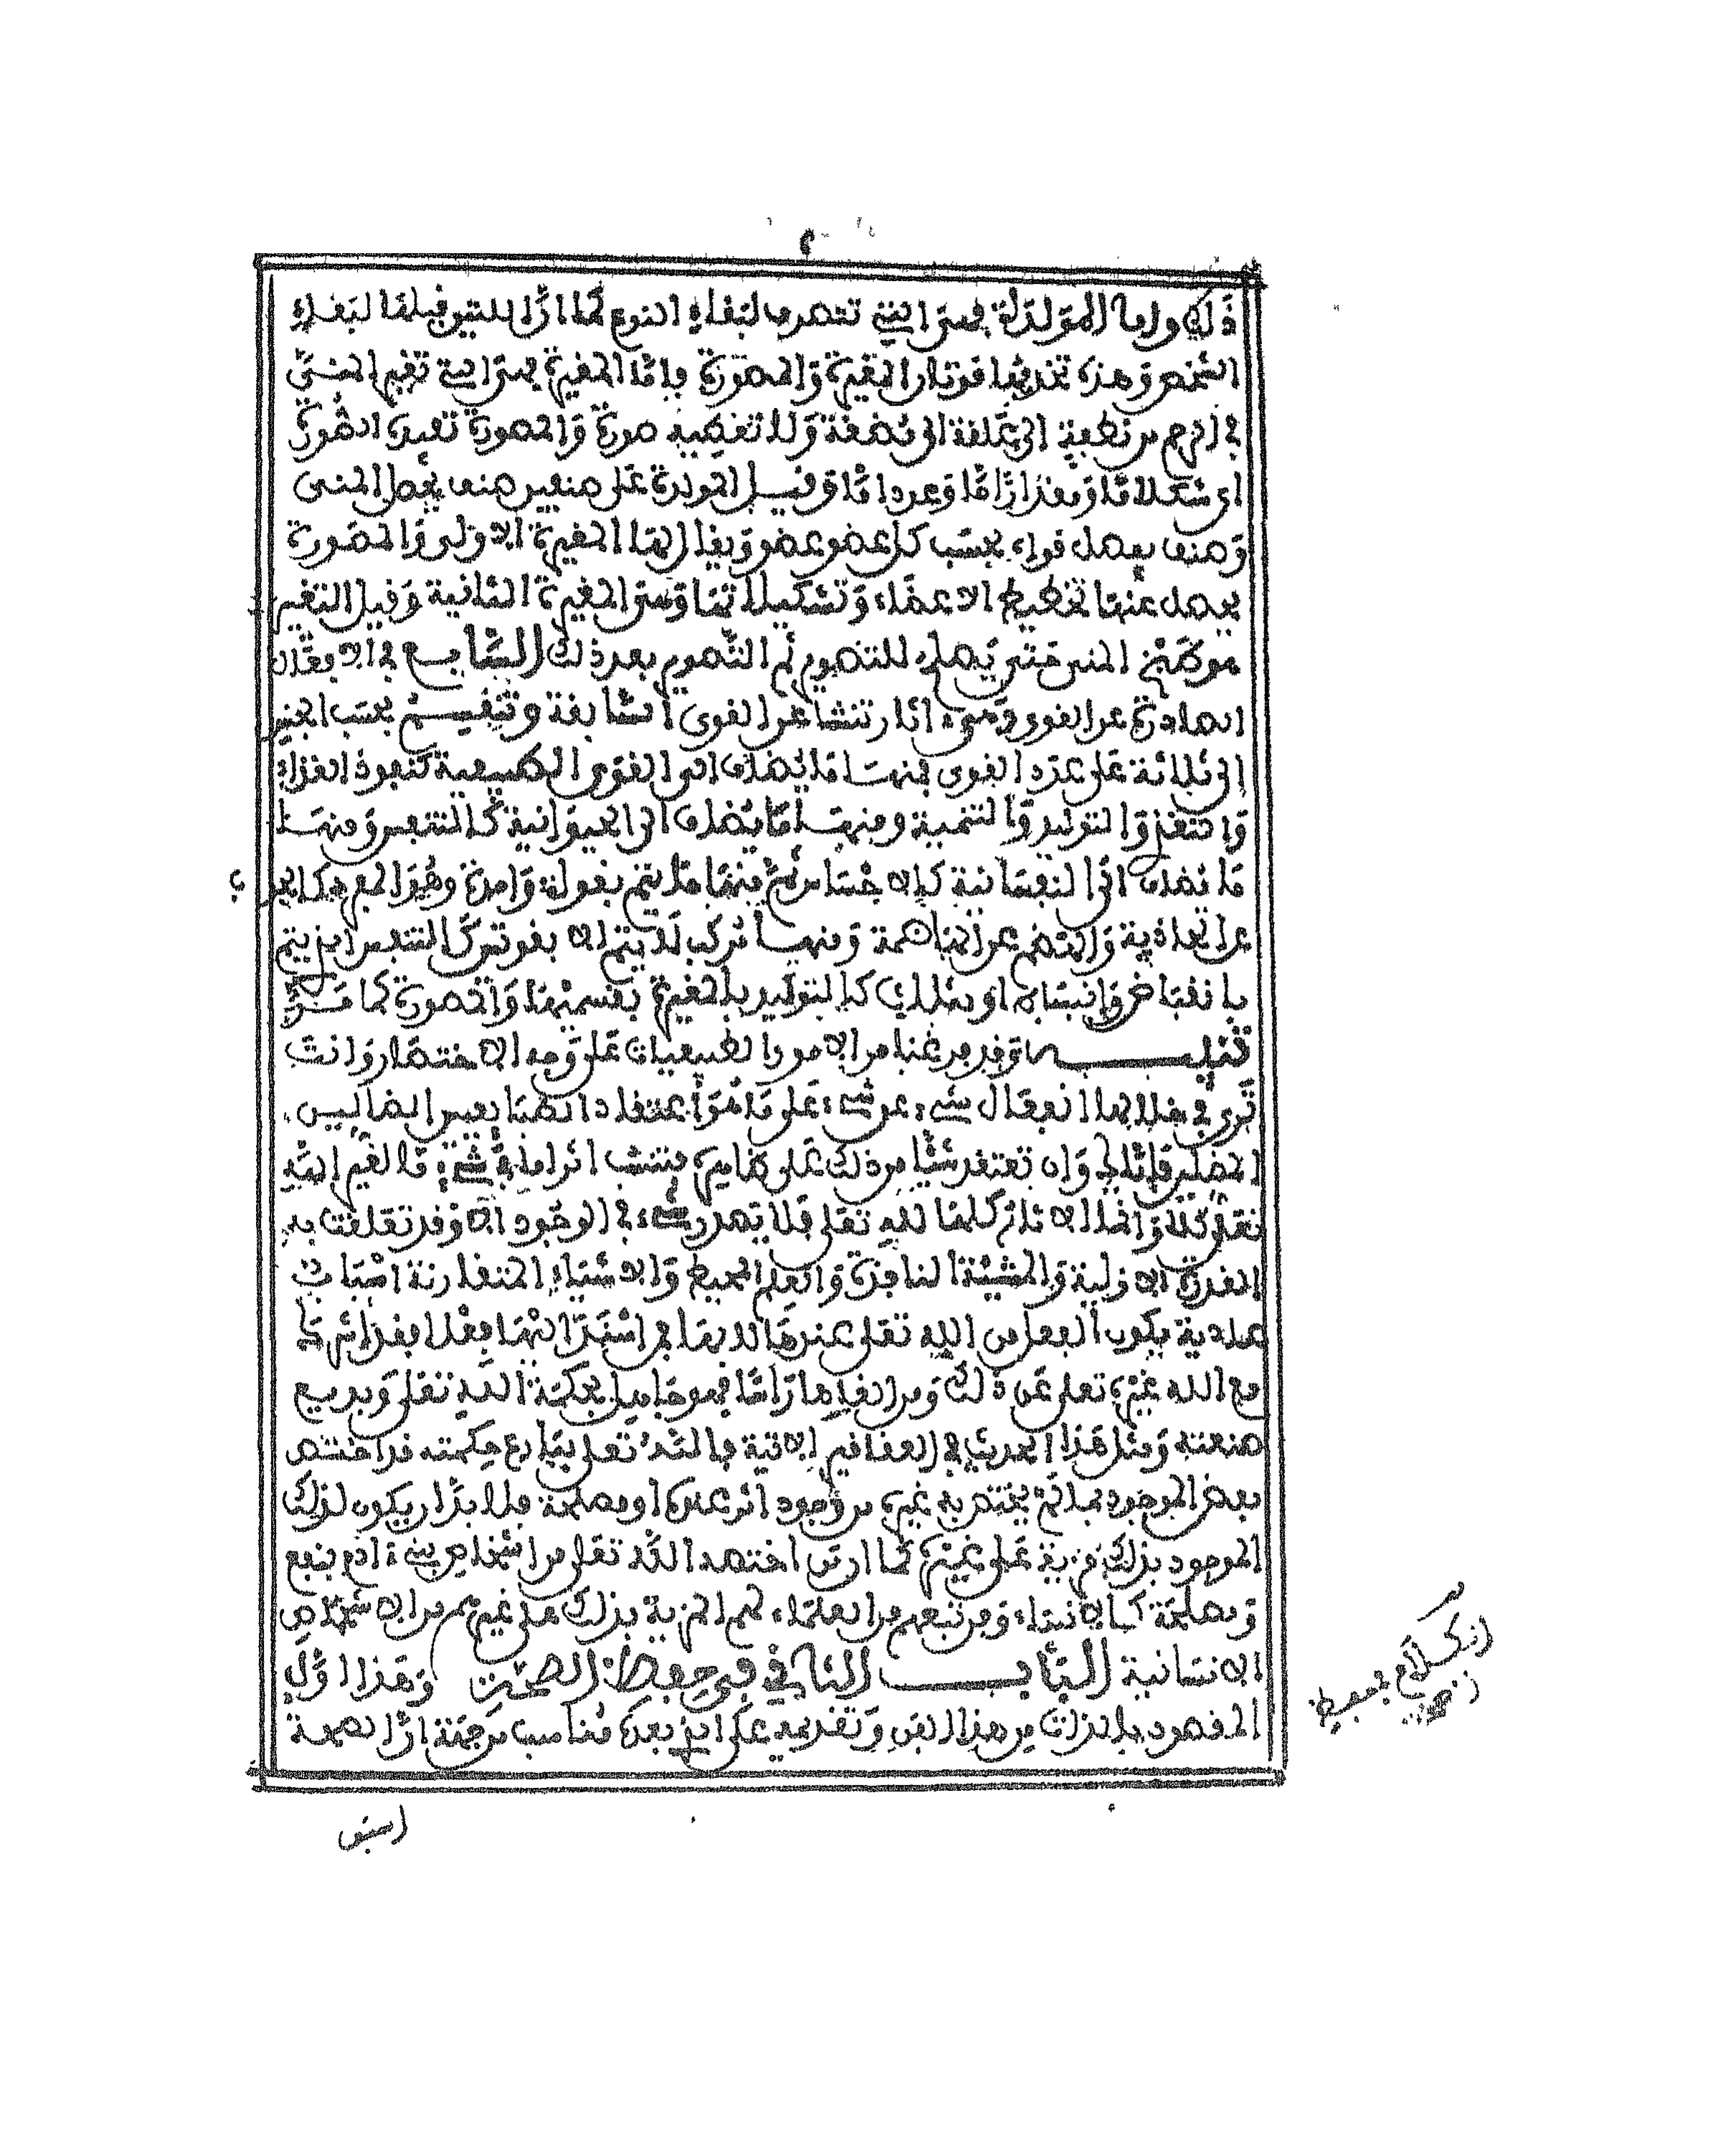 ذلك واما المولدة فهي التي تتصرف لبقاء النوع كما ان اللتين قبلها لبقاء
الشخص وهذه تخدمها قوتان المغيرة والمصورة فاما المغيرة فهي التي تغير المني
في الرحم من نطفة الى علقة الى مضغة ولا تعطيه صورة والمصورة تعيده الصورة
اي شكلا ما ومقدارا ما وعددا ما وقيل المولدة على صنفين صنف يفصل المني
وصنف يفصل قواه بحسب كل عضو عضو ويقال لها المغيرة الاولى والمصورة
يصدر عنها تخطيط الاعضاء وتشكيلاتها وتسمى المغيرة الثانية وقيل التغير
هو طبخ المني حتى يصلح للتصوير ثم التصوير بعد ذلك السابع في الافعال
الصادرة عن القوى وهي اثار تنشا عن القوى السابقة وتنقسم بحسب الجنس
الى ثلاثة على عدد القوى فمنها ما يضاف الى القوى الطبيعية كنفوذ الغذاء
والتغذي والتوليد والتنمية ومنها ما يضاف الى الحيوانية كالتنفس ومنها
ما يضاف الى النفسانية كالاحساس ثم منها ما يتم بقوة واحدة وهو المفرد كالجذب
عن الجاذبية والهضم عن الهاضمة ومنها مركب لا يتم الا بقوتين كالتنفس الذي يتم
بانقباض وانبساط او بثلاث كالتوليد بالمغيرة بقسميها والمصورة كما مر
تنبيه وقد فرغنا من الامور الطبيعيات على وجه الاختصار وانت
ترى في خلالها انفعال شيء عن شيء على ما هو اعتقاد الاطباء بعين الضالين
المضلين فاياك وان تعتقد شيئا من ذلك على ظاهره فتنسب اثرا ما في شيء ما لغير الله
تعلى كلا والحالان الاثار كلها لله تعلى فلا يصدر شيء في الوجود الا وقد تعلقت به
القدرة الازلية والمشيئة النافذة والعلم المحيط والاشياء المتقارنة اسباب
عادية يكون الفعل من الله تعلى عندها لا بها فمن اسند اليها فعلا فقد اشرك
مع الله غيره تعلى عن ذلك ومن الغاها راسا فهو جاهل بحكمة الله تعلى وبديع
صنعته ومثل هذا الحديث في العقاقير الاتية فالله تعلى ببدائع حكمته قد اختص
بعض الموجود بما لم يختص به غيره من وجود اثر عنده او مصلحة فلا بد ان يكون لذلك
الموجود بذلك مزية على غيره كما ان من اختصه الله تعلى من اشخاص بني ءادم بنفع
ومصلحة كالانبياء ومن تبعهم من العلماء لهم المزية بذلك على غيرهم من الاشخاص
الانسانية الباب الثاني في حفظ الصحة وهذا اول
المقصود بالذات من هذا الفن وتقديمه على الذي بعده مناسب من جهة ان الصحة
اسبق